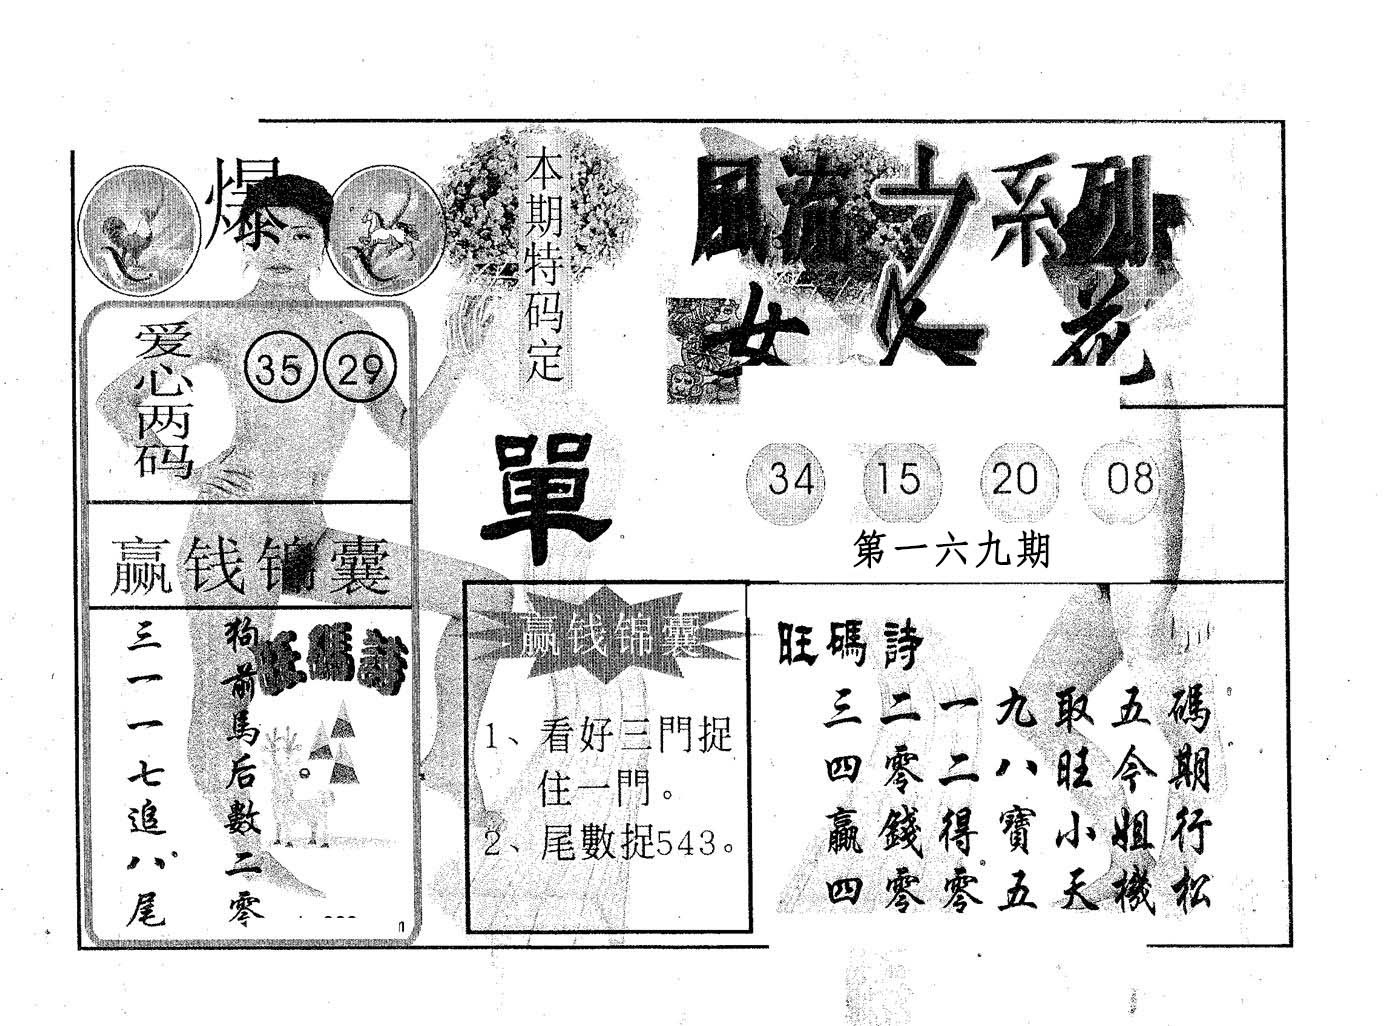 爆
本期特码定
單
爱心两码
35 29
赢钱锦囊
狗前馬后數二零
三一一七追八尾
旺碼詩
赢钱锦囊
1、看好三門捉
住一門。
2、尾數捉543。
風流之系列
女人花
34 15 20 08
第一六九期
旺碼詩
三二一九取五碼
四零二八旺今期
贏錢得寶小姐行
四零零五天機松